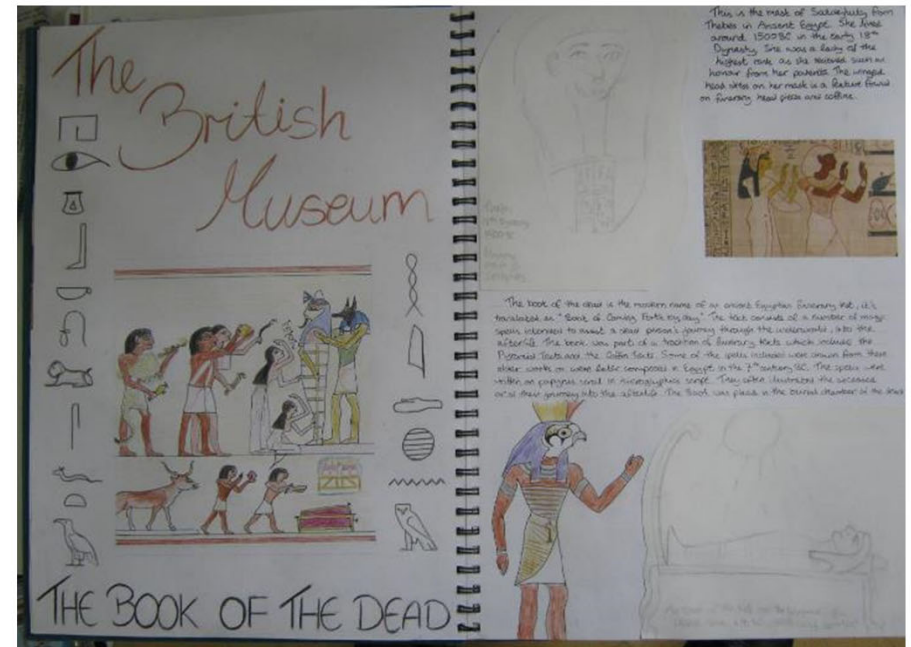 The
British
Museum
THE BOOK OF THE DEAD
This is the mask of from
Thebes in Ancient Egypt. She lived
around 1500BC in the early 18th
Dynasty. She was a lady of the
highest rank as she received such an
honour from her parents. The winged
head dress on her mask is a feature found
on funerary head pieces and coffins.
The book of the dead is the modern name of an ancient Egyptian funerary text, it's
translated as "Book of Coming Forth by day". The text consists of a number of magic
spells intended to assist a dead person's journey through the underworld, into the
afterlife. The book was part of a tradition of funerary texts which include the
Pyramid Texts and the Coffin Texts. Some of the spells included were drawn from these
older works or were composed in Egypt in the 7th century BC. The spells were
written on papyrus scroll in hieroglyphics script. They often illustrate the deceased
on their journey into the afterlife. The Book was place in the burial chamber of the dead